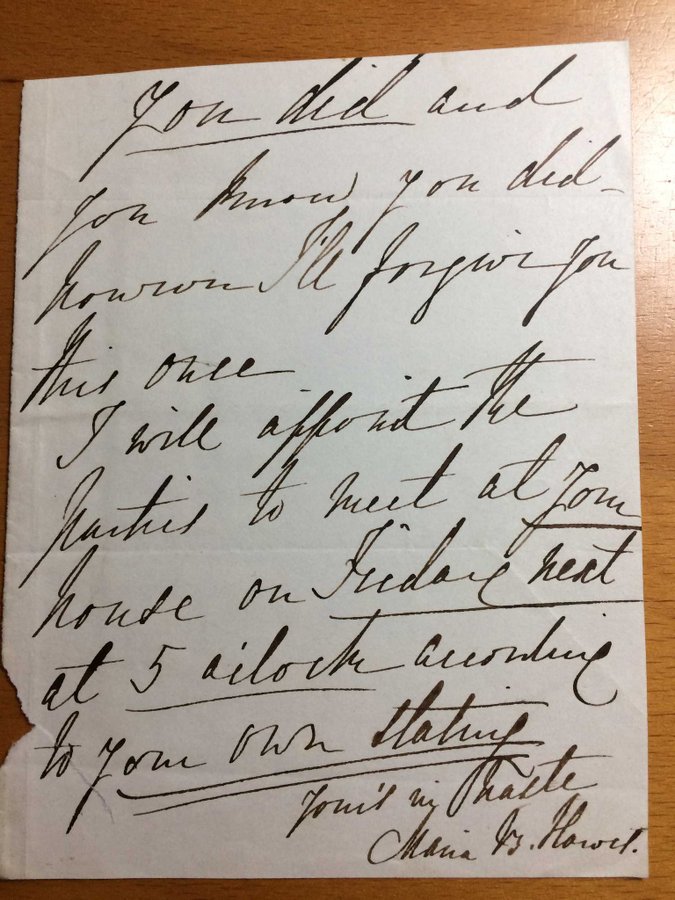 You did and
you know you did -
however I'll forgive you
this once
I will appoint the
parties to meet at your
house on Friday next
at 5 o'clock according
to your own stating
Your's in haste
Maria B. Howes.